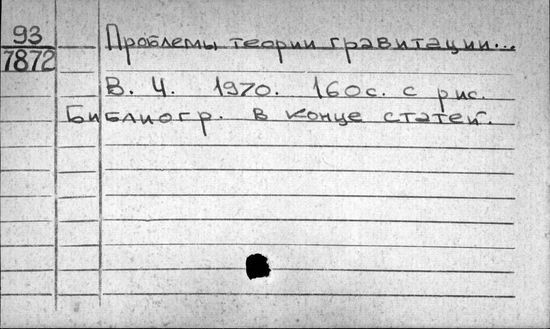 93
7872
Проблемы теории гравитации...
В. Ч. 1970. 160с. с рис.
Библиогр. в конце статей.